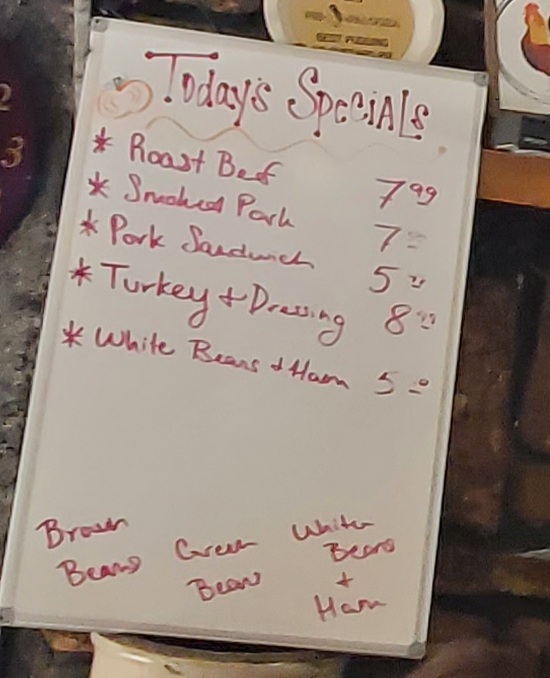 BEST PUDDING
2
3
Today's Specials
* Roast Beef 7 99
* Smoked Pork 7
* Pork Sandwich 5
* Turkey + Dressing 8 99
* White Beans + Ham 5
Brown Beans
Green Beans
White Beans + Ham